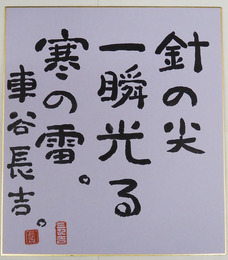 針の尖
一瞬光る
寒の雷。
車谷長吉。